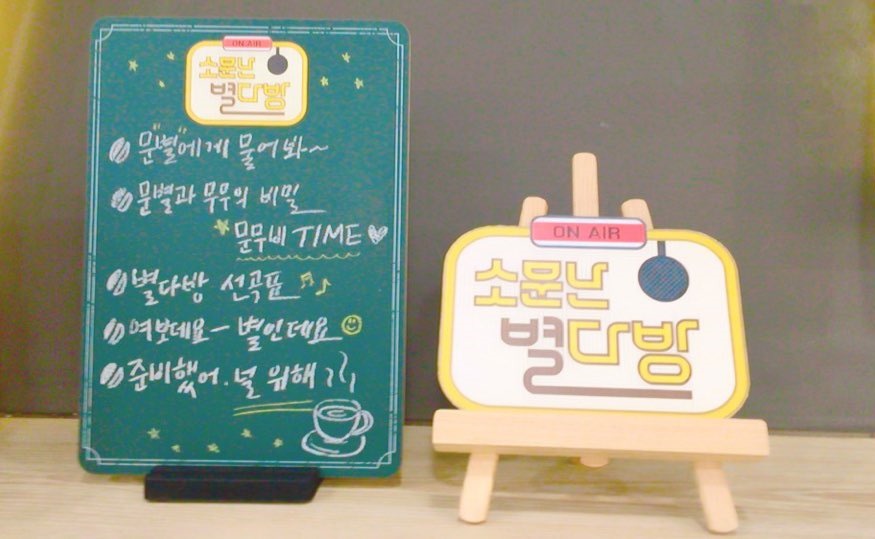 ON AIR
소문난
별다방
문"별"에게 물어봐~
문별과 무무의 비밀
문무비 TIME
별다방 선곡표
여보데요- 별인데요
준비했어. 널 위해
ON AIR
소문난
별다방